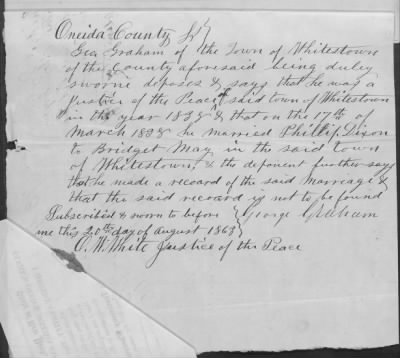 Oneida County SS
Geo Graham of the Town of Whitestown
of the County aforesaid being duley
sworne deposes & says that he was a
Justice of the Peace of said town of Whitestown
in the year 1838 & that on the 17th of
March 1838 he married Phillip Dixon
to Bridget May in the said town
of Whitestown, & the deponent further says
that he made a record of the said marriage &
that the said record is not to be found
Subscribed & sworn to before George Graham
me this 20th day of August 1863
O. W. White Justice of the Peace